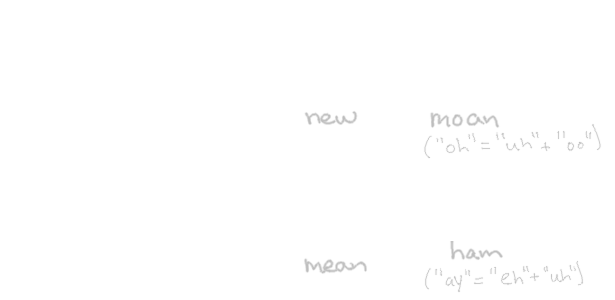 new moan
("oh" = "uh" + "oo")
mean ham
("ay" = "eh" + "uh")